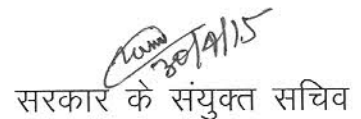 30/9/15
सरकार के संयुक्त सचिव